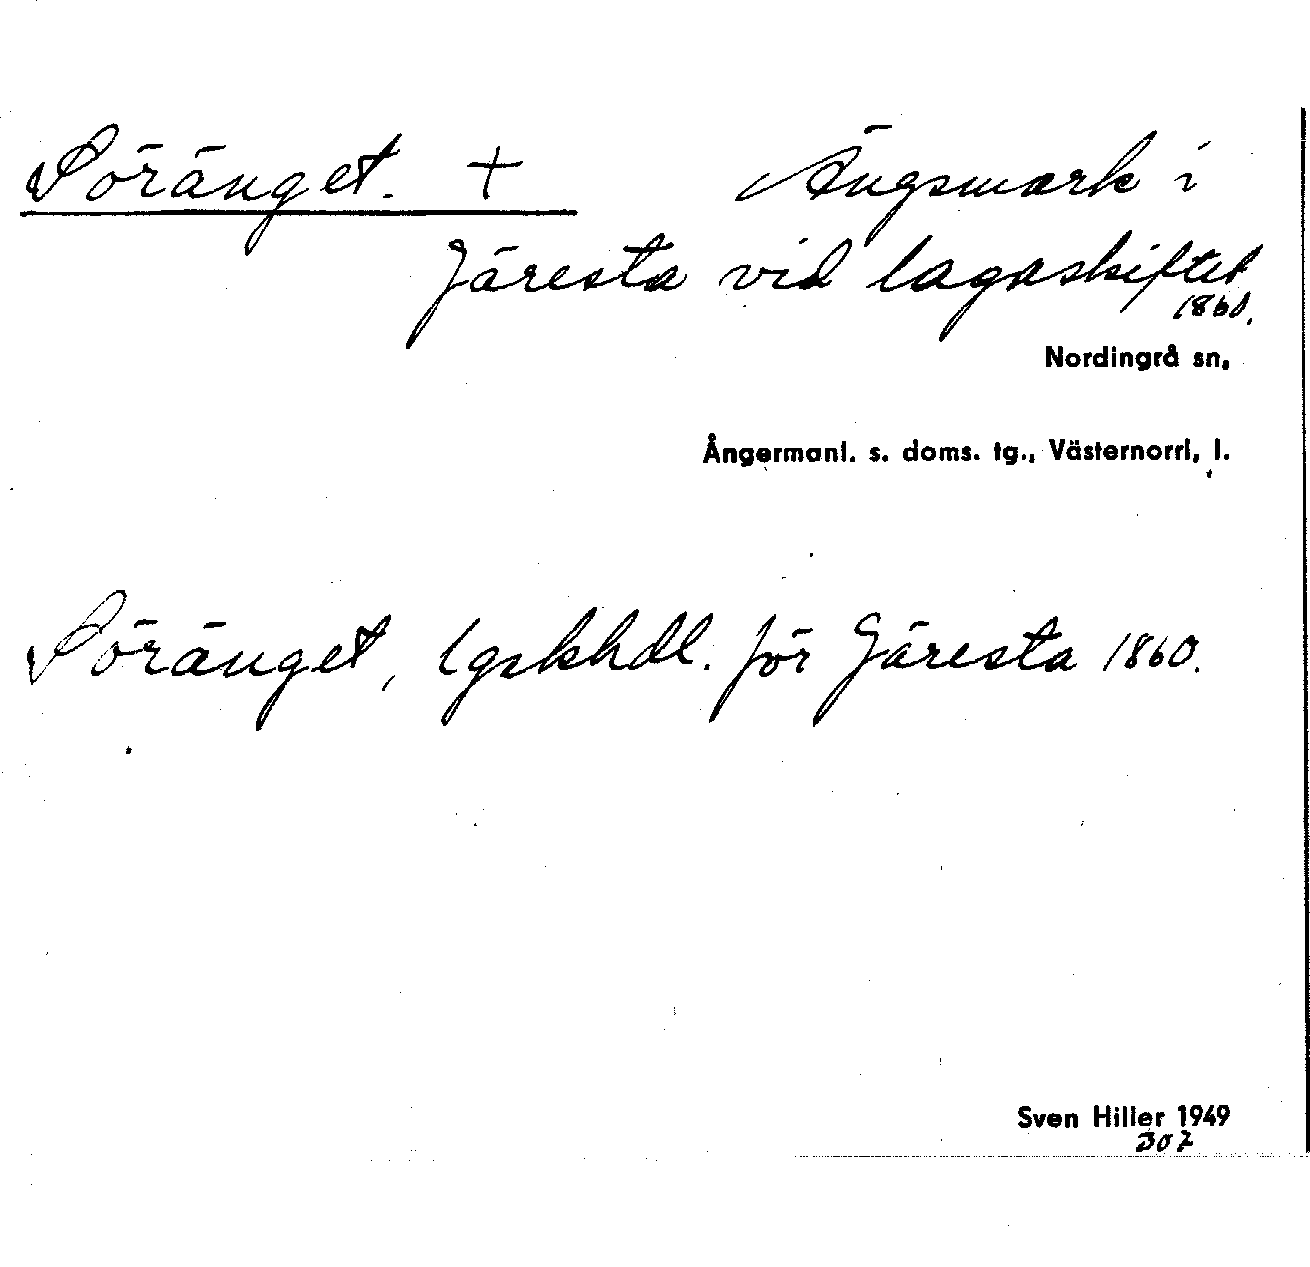 Söränget. + Ängsmark i
Järesta vid lagaskiftet
1860.
Nordingrå sn,
Ångermanl. s. doms. tg., Västernorrl, l.
Söränget, lgskhdl. för Järesta 1860.
Sven Hiller 1949
307